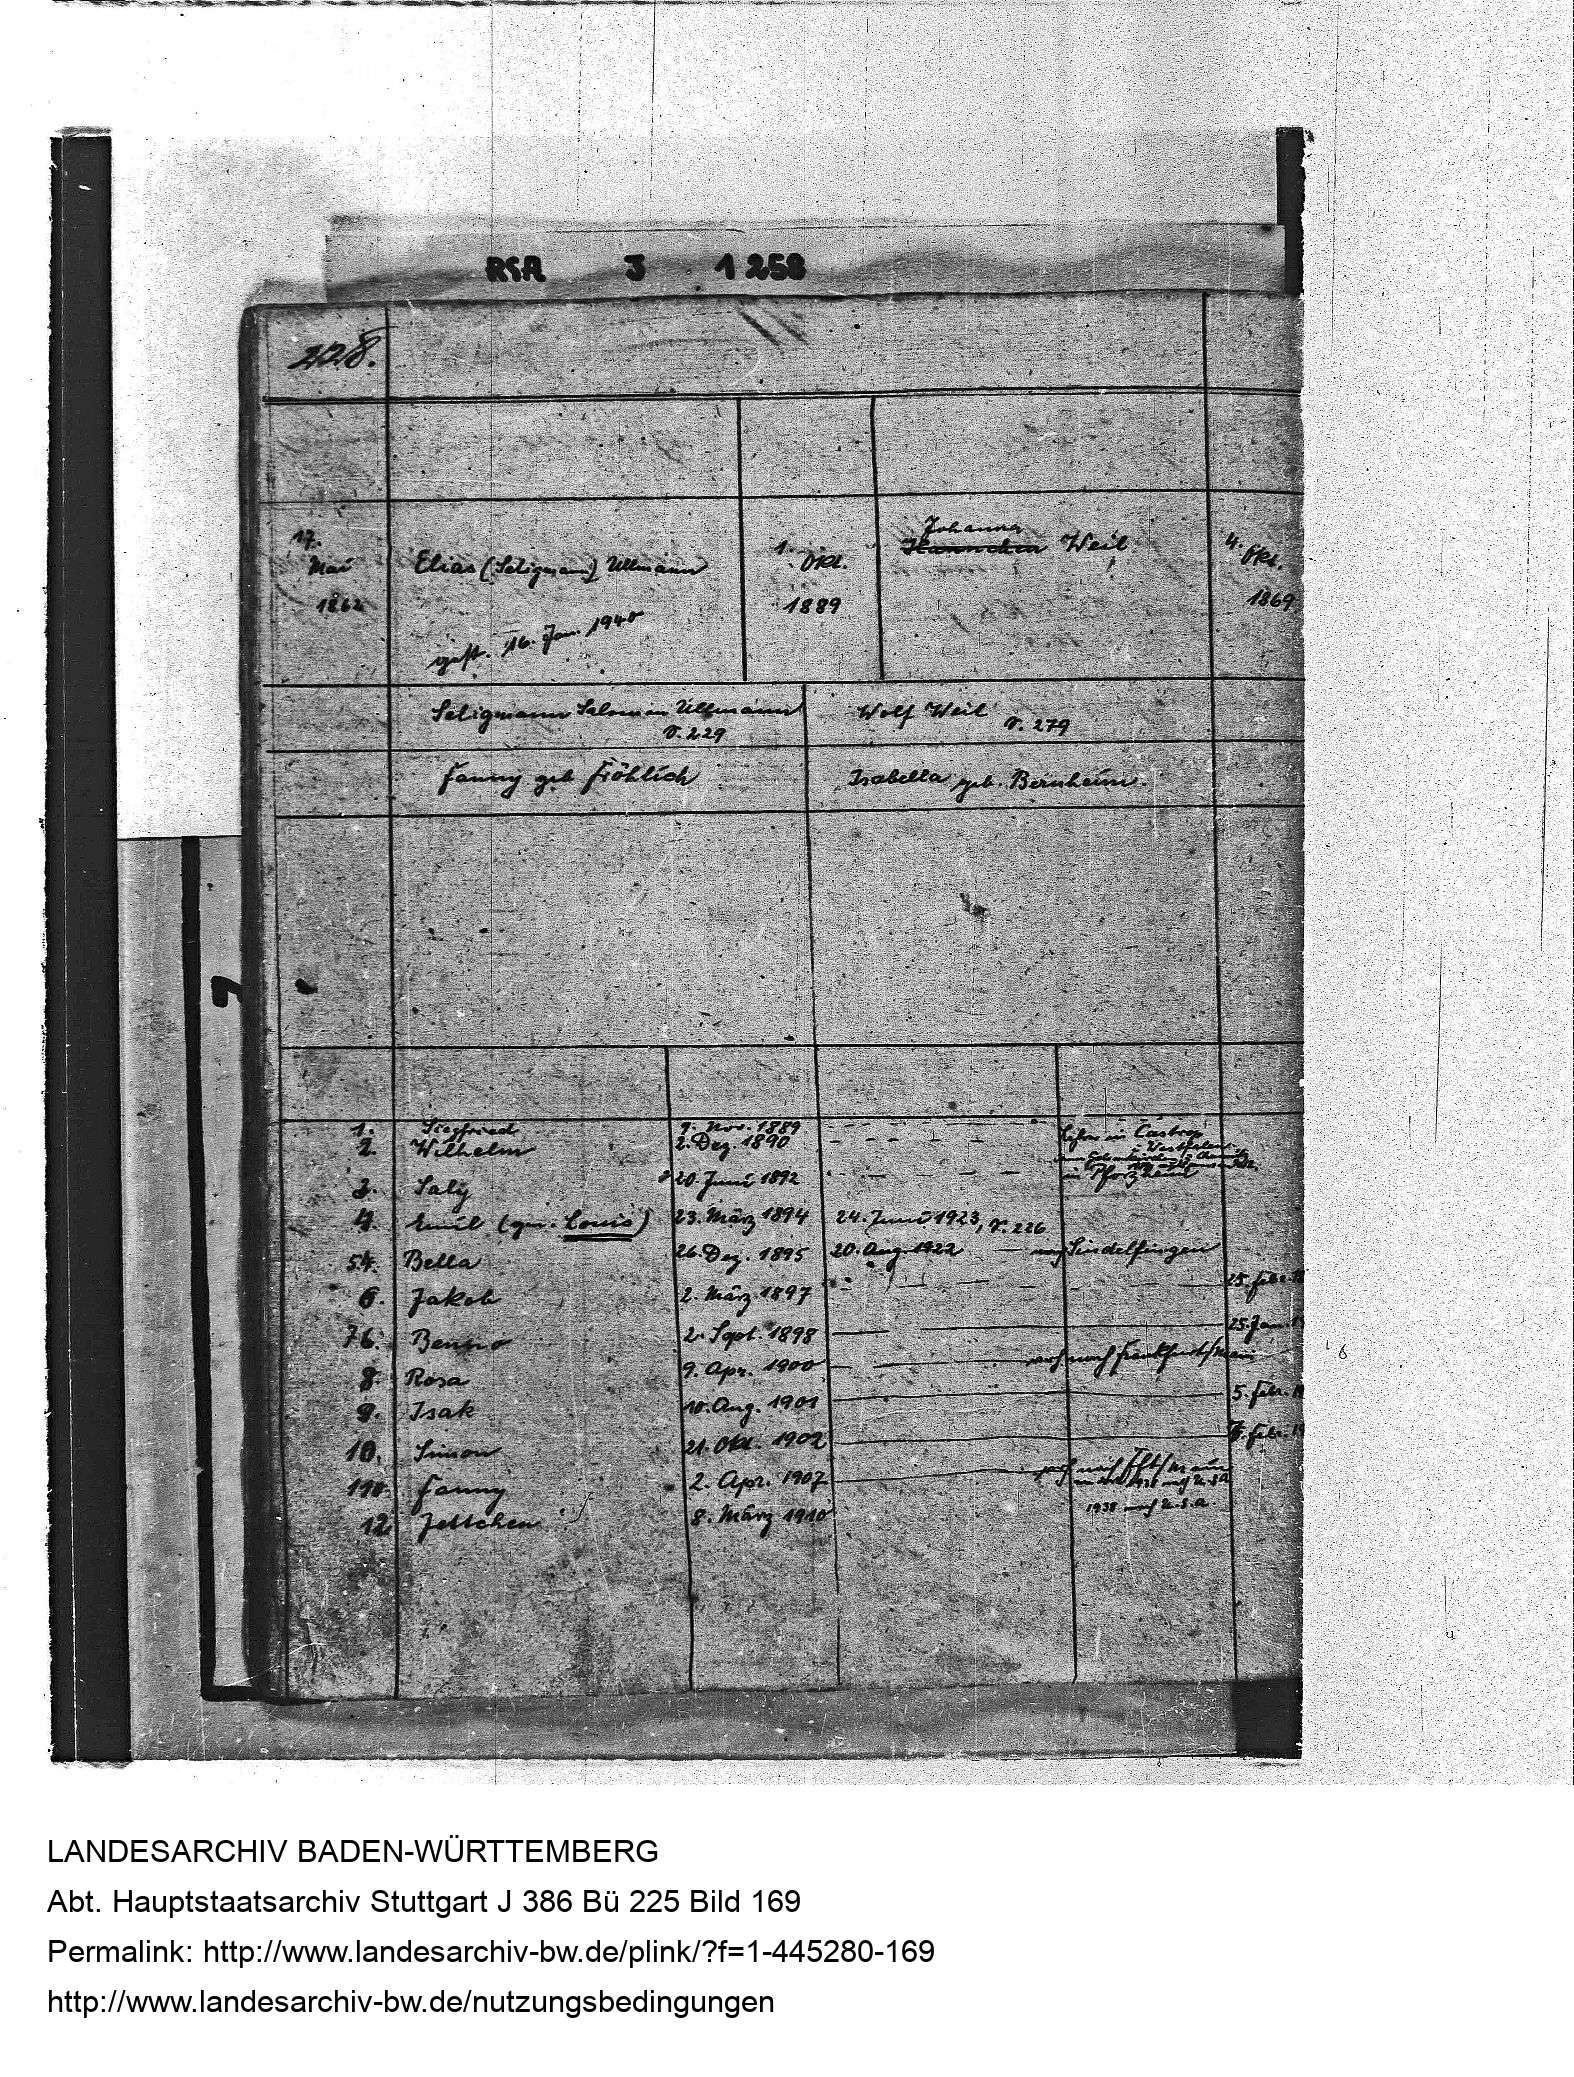 RSA 3 1258
228.
17. Mai 1862
Elias (Seligmann) Ullmann
gest. 16. Jan. 1940
1. Okt. 1889
Johanna
Hannchen Weil
4. Okt. 1869
Seligmann Salomon Ullmann
V. 229
Wolf Weil
V. 279
Fanny geb. Fröhlich
Isabella geb. Bernheim.
1. Siegfried 9. Nov. 1889
2. Wilhelm 2. Dez. 1890 in Castrop
3. Saly 20. Juni 1892 in Pforzheim
4. Emil (gen. Louis) 23. März 1894 24. Juni 1923, V. 226
5. Bella 26. Dez. 1895 20. Aug. 1922 Sindelfingen
6. Jakob 2. März 1897 25. Febr.
7. Benno 2. Sept. 1898 25. Jan.
8. Rosa 9. Apr. 1900 nach Frankfurt/Main
9. Isak 10. Aug. 1901 5. Febr.
10. Simon 21. Okt. 1902 Febr.
11. Fanny 2. Apr. 1907 nach
12. Jettchen 8. März 1910 1938 nach U.S.A.
LANDESARCHIV BADEN-WÜRTTEMBERG
Abt. Hauptstaatsarchiv Stuttgart J 386 Bü 225 Bild 169
Permalink: http://www.landesarchiv-bw.de/plink/?f=1-445280-169
http://www.landesarchiv-bw.de/nutzungsbedingungen